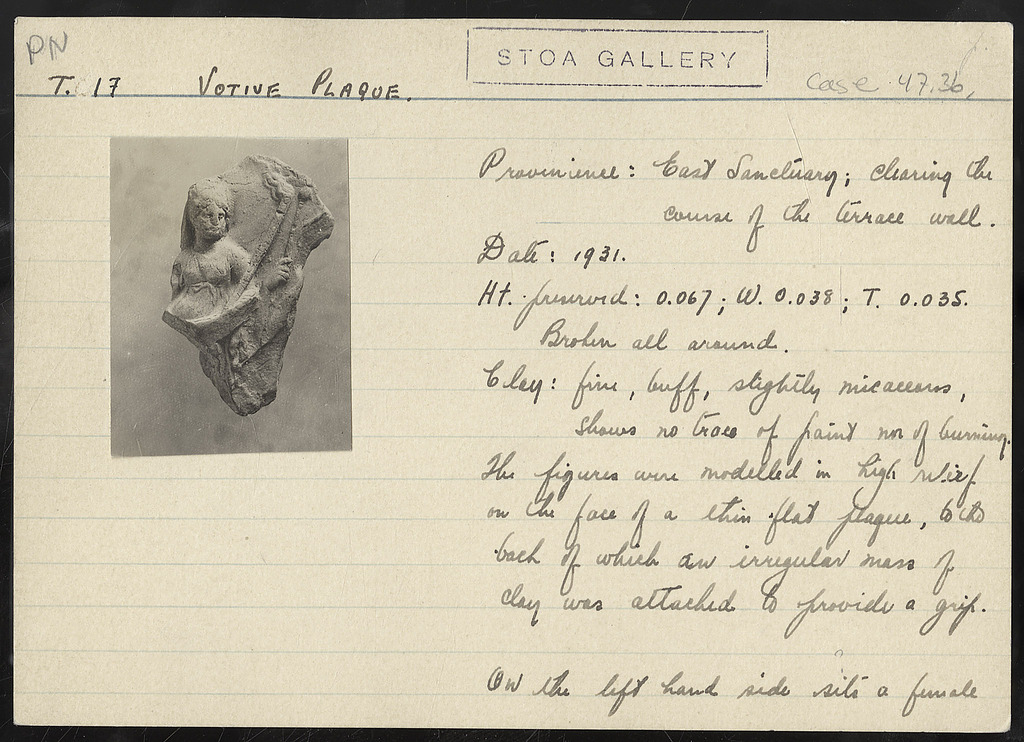 PN
STOA GALLERY
T. 17 VOTIVE PLAQUE.
Case 47,36,
Provinience: East Sanctuary; clearing the
course of the terrace wall.
Date: 1931.
Ht. preserved: 0.067; W. 0.038; T. 0.035.
Broken all around.
Clay: fine, buff, slightly micaceous,
shows no trace of paint nor of burning.
The figures were modelled in high relief
on the face of a thin flat plaque, to the
back of which an irregular mass of
clay was attached to provide a grip.
On the left hand side sits a female